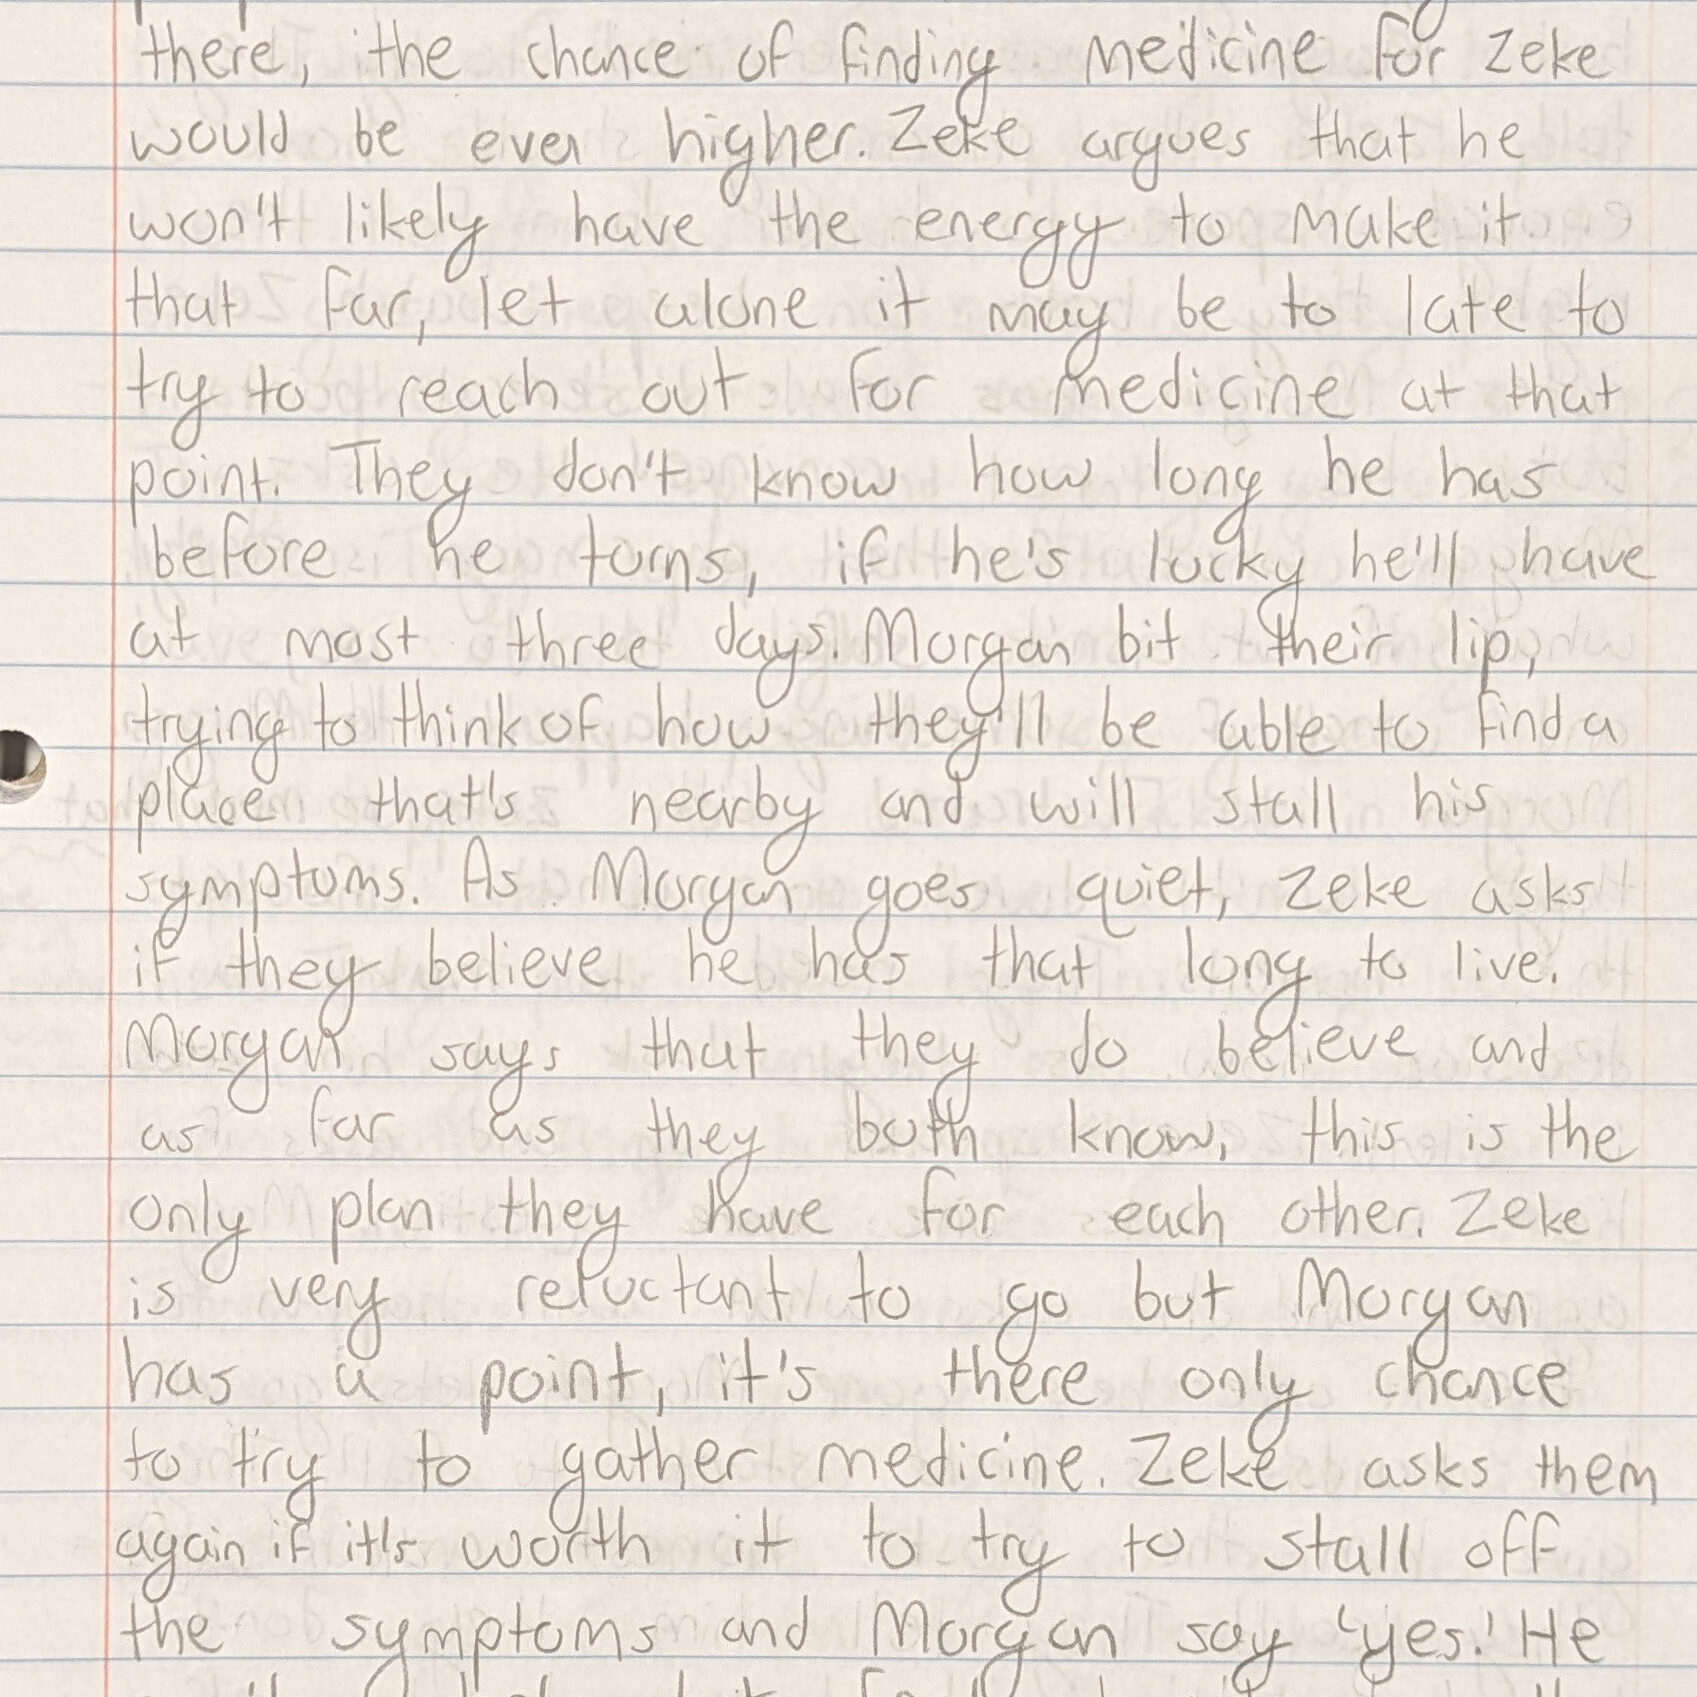 there, the chance of finding medicine for Zeke
would be even higher. Zeke argues that he
won't likely have the energy to make it
that far, let alone it may be to late to
try to reach out for medicine at that
point. They don't know how long he has
before he turns, if he's lucky he'll have
at most three days. Morgan bit their lip,
trying to think of how they'll be able to find a
place that's nearby and will stall his
symptoms. As Morgan goes quiet, Zeke asks
if they believe he has that long to live.
Morgan says that they do believe and
as far as they both know, this is the
only plan they have for each other. Zeke
is very reluctant to go but Morgan
has a point, it's there only chance
to try to gather medicine. Zeke asks them
again if it's worth it to try to stall off
the symptoms and Morgan say 'yes.' He